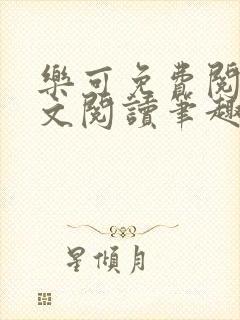 樂可免費閱
文閱讀筆趣
星傾月